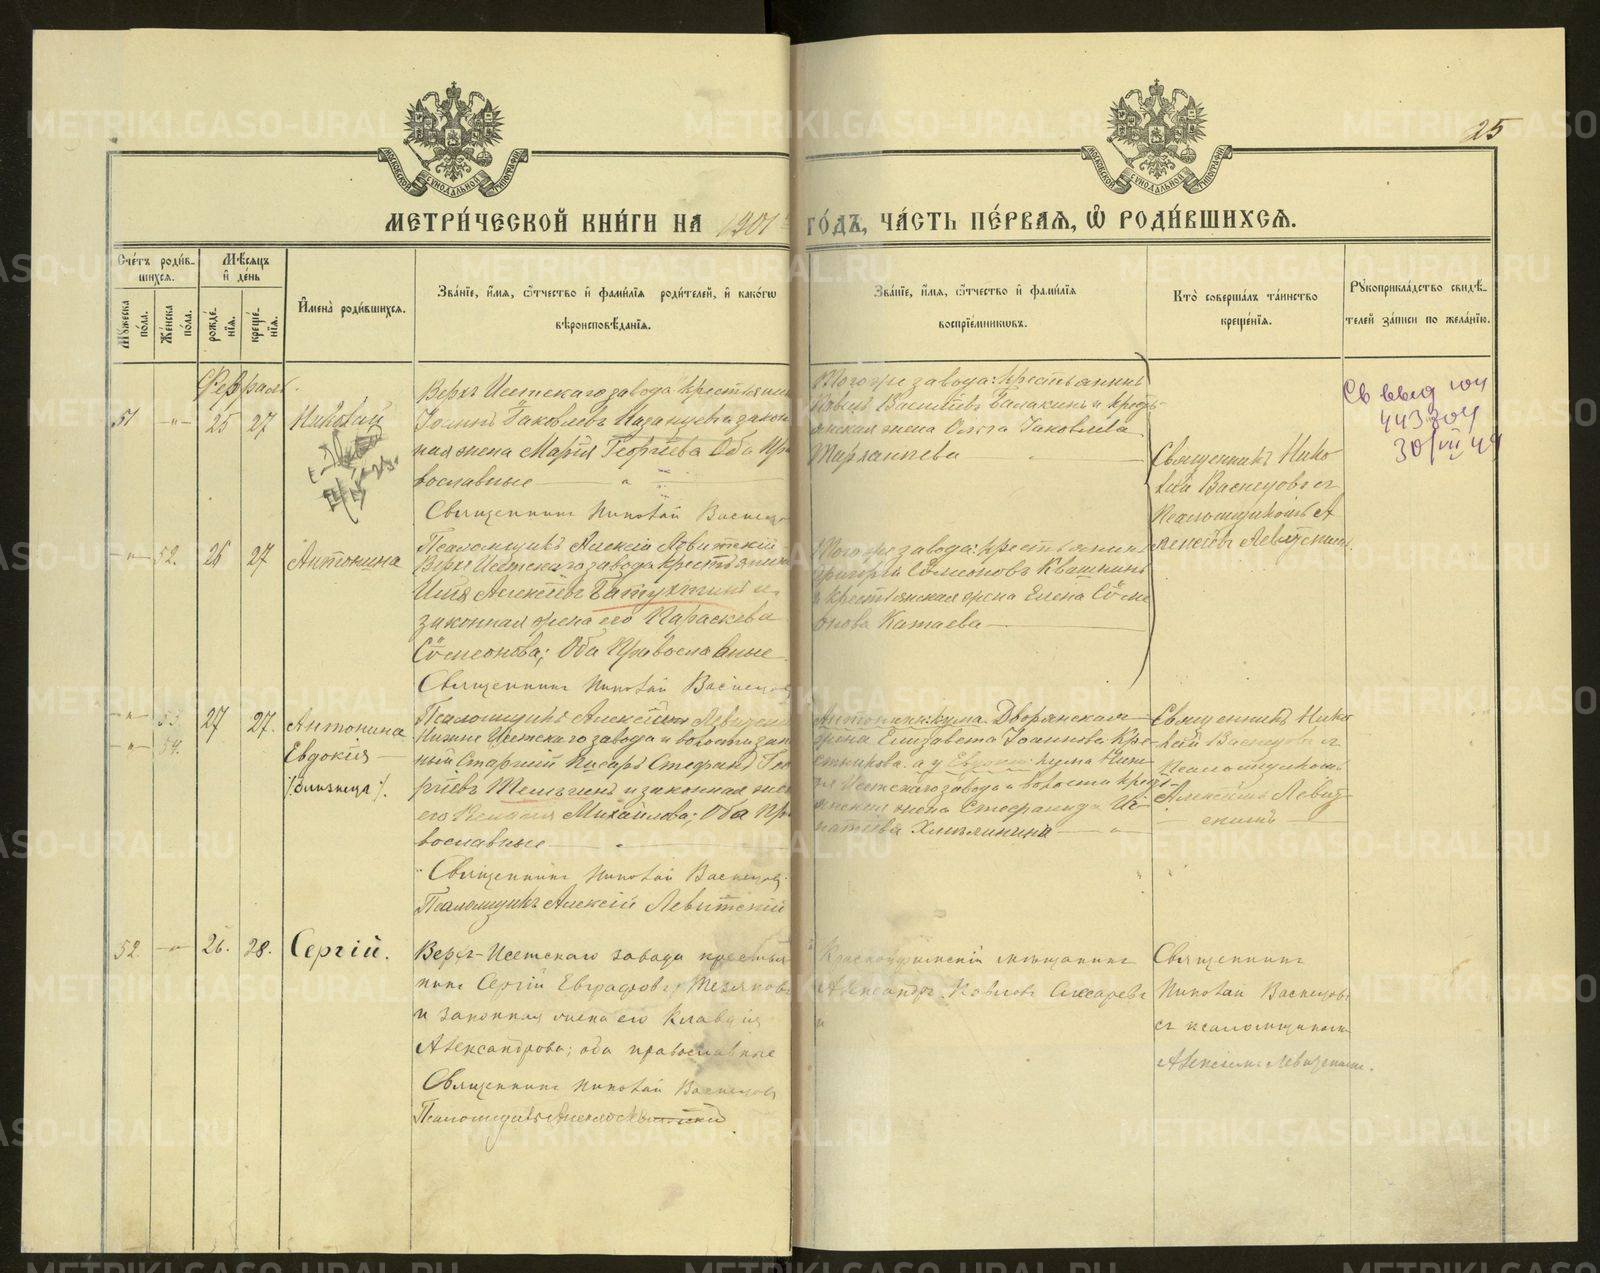 25
МОСКОВСКОЙ СѴНОДАЛЬНОЙ ТИПОГРАФІИ
МОСКОВСКОЙ СѴНОДАЛЬНОЙ ТИПОГРАФІИ
МЕТРИ́ЧЕСКОЙ КНИ́ГИ НА 1901
ГО́ДЪ, ЧА́СТЬ ПЕ́РВАЯ, Ѡ҆ РОДИ́ВШИХСѦ.
Сче́тъ роди́в-
шихсѧ.
Мѣ́сяцъ
и҆ де́нь
Мꙋ́жеска по́ла.
Же́нска по́ла.
рожде́нїѧ.
креще́нїѧ.
И҆мена̀ роди́вшихсѧ.
Зва́нїе, и҆́мѧ, ѻ҆́тчество и҆ фами́лїѧ роди́телей, и҆ како́гѡ
вѣроисповѣ́данїѧ.
Зва́нїе, и҆́мѧ, ѻ҆́тчество и҆ фами́лїѧ
воспрїе́мникѡвъ.
Кто̀ соверша́лъ та́инство
креще́нїѧ.
Рꙋкоприкла́дство свидѣ́-
телей за́писи по жела́нїю.
Февраль.
51 -"- 25 27 Николай
Верхъ Исетскаго завода крестьянин
Іоаннъ Іаковлевъ Казанцевъ и закон
ная жена Марія Георгіева Оба Пра
вославные
Священникъ Николай Васнецовъ
Псаломщикъ Алексій Левитскій
Того же завода: крестьянинъ
Павелъ Васильевъ Балакинъ и крест-
янская жена Ольга Іаковлева
Священникъ Нико
лай Васнецовъ съ
Псаломщикомъ А
лексѣемъ Левитскимъ.
443304
30/VII 49
-"- 52. 26 27 Антонина
Верхъ Исетскаго завода крестьянинъ
Илія Алексѣевъ и
законная жена его Параскева
Сѵмеонова; Оба Православные
Священникъ Николай Васнецовъ
Псаломщикъ Алексій Левитскій
Того же завода: крестьянинъ
Григорій Сѵмеоновъ Квашнинъ
и крестьянская жена Елена Сѵме
онова Катаева
-"- 53. 27 27. Антонина
-"- 54. Евдокія
/:близнеца:/.
Нижне Исетскаго завода и волости
Старшій Писарь Стефанъ Геор
гіевъ и законная жена
его Михайлова; Оба Пра
вославные
Священникъ Николай Васнецовъ
Псаломщикъ Алексій Левитскій
Антонины: кума Дворянская
жена Елизавета Іоаннова
а у Евдокіи: кума Ниж
не Исетскаго завода и волости крест-
янская жена Стефанида Иг
натіева
Священникъ Нико
лай Васнецовъ съ
Псаломщикомъ
Алексѣемъ Левит
скимъ
52 -"- 26. 28. Сергій.
Верхъ-Исетскаго завода крестья
нинъ Сергій Евграфовъ
и законная жена его Клавдія
Александрова; оба православные
Священникъ Николай Васнецовъ
Псаломщикъ Алексій Левитскій
Красноуфимскій мѣщанинъ
Александръ Павловъ Слесаревъ
Священникъ
Николай Васнецовъ
съ псаломщикомъ
Алексѣемъ Левитскимъ.
METRIKI.GASO-URAL.RU